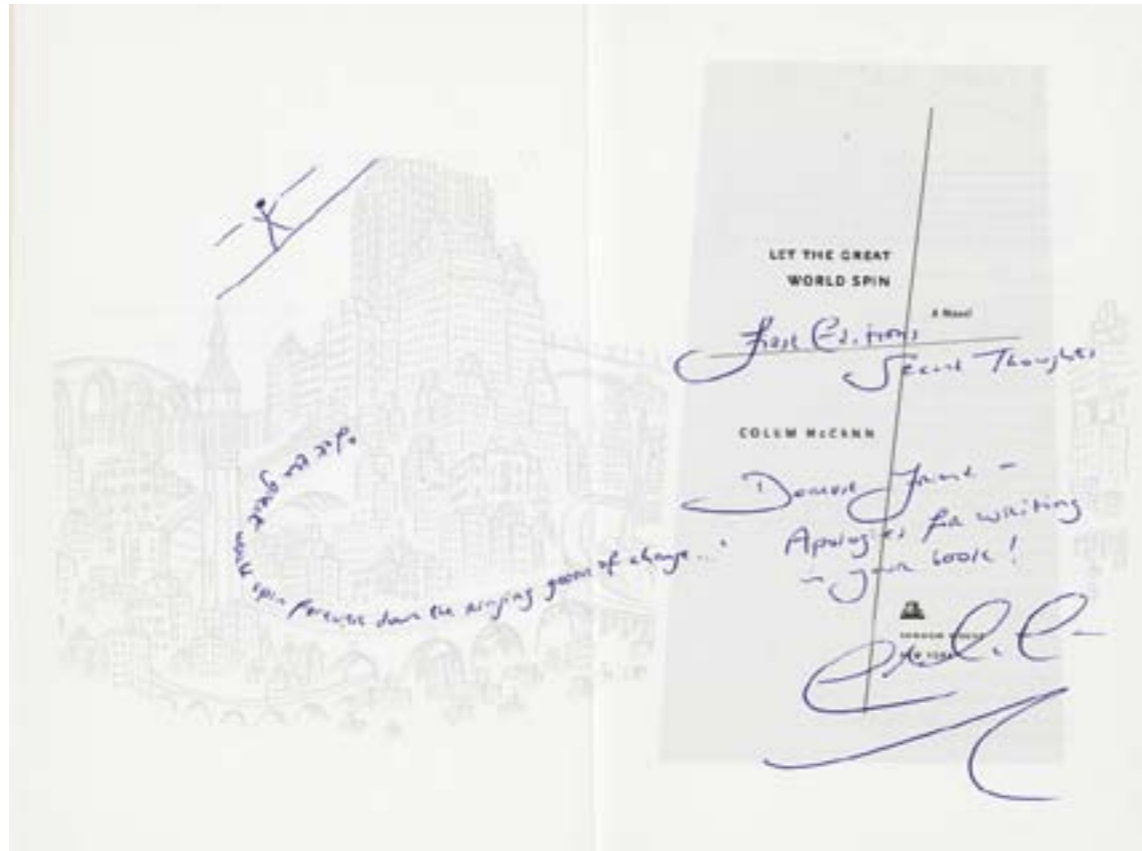 let the great world spin forever down the ringing grooves of change...'
LET THE GREAT
WORLD SPIN
A Novel
First Editions
Second Thoughts
COLUM McCANN
Dearest Friend –
Apologies for writing
in your book!
RANDOM HOUSE
NEW YORK